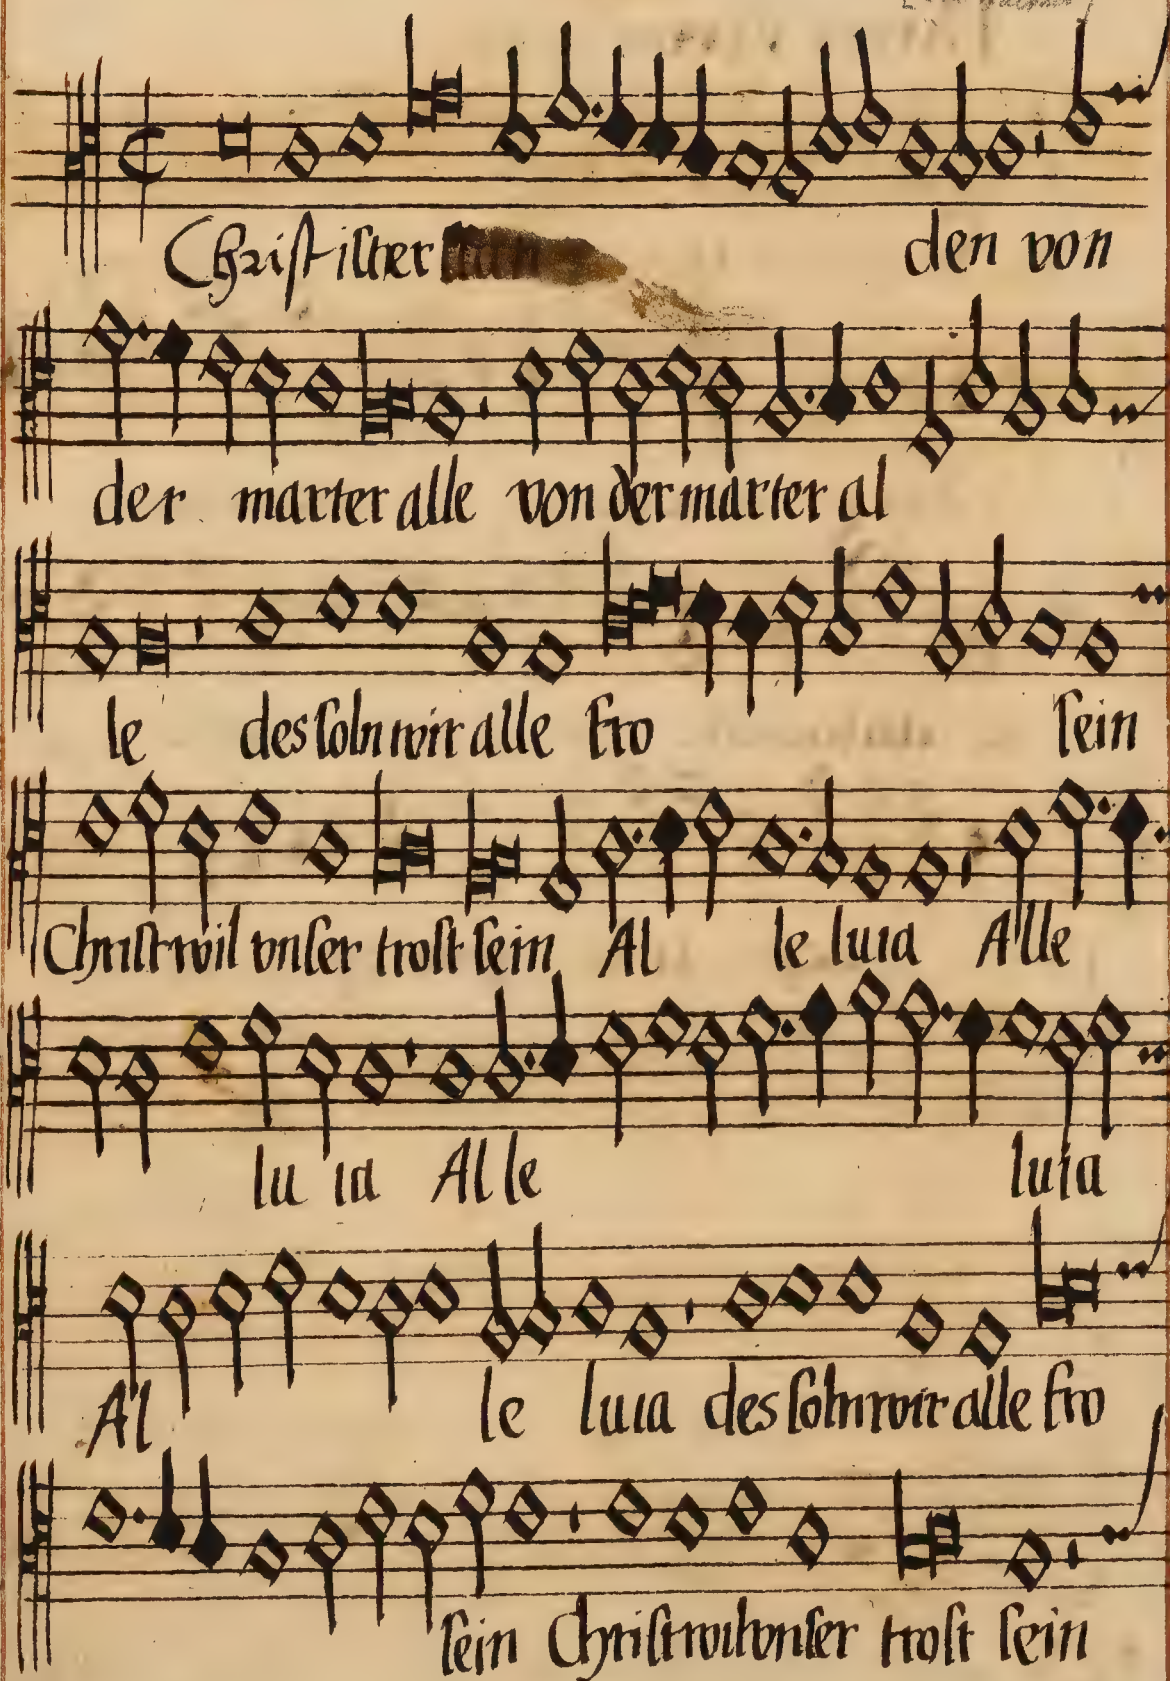 Christ ist er den von
der marter alle von der marter al
le des soln wir alle fro sein
Christ wil vnser trost sein Al le luia Alle
lu ia Al le luia
Al le luia des soln wir alle fro
sein Christ wil vnser trost sein